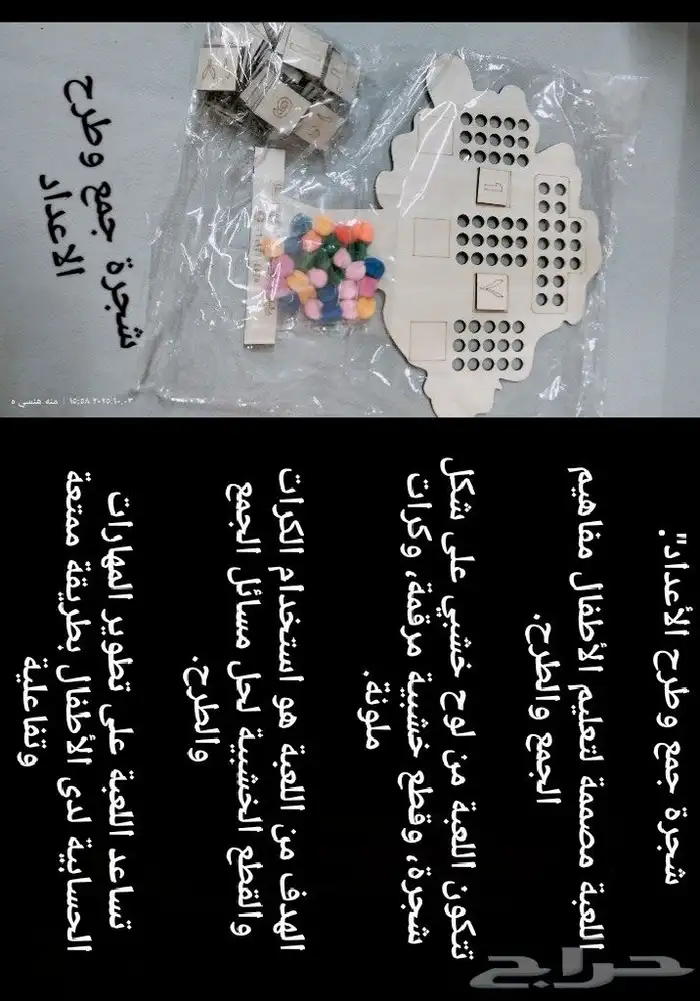 شجرة جمع وطرح
الاعداد
شجرة جمع وطرح الأعداد".
اللعبة مصممة لتعليم الأطفال مفاهيم
الجمع والطرح.
تتكون اللعبة من لوح خشبي على شكل
شجرة، وقطع خشبية مرقمة، وكرات
ملونة.
الهدف من اللعبة هو استخدام الكرات
والقطع الخشبية لحل مسائل الجمع
والطرح.
تساعد اللعبة على تطوير المهارات
الحسابية لدى الأطفال بطريقة ممتعة
وتفاعلية
حراج